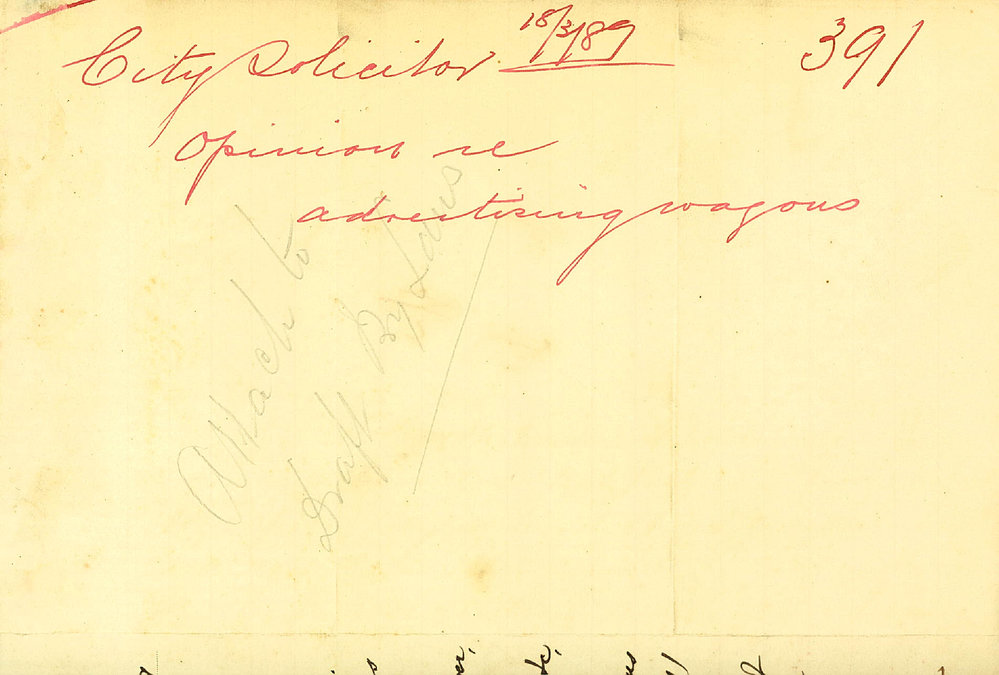 City Solicitor 18/3/89 391
Opinion re
advertising wagons
Attach to
Draft By Laws